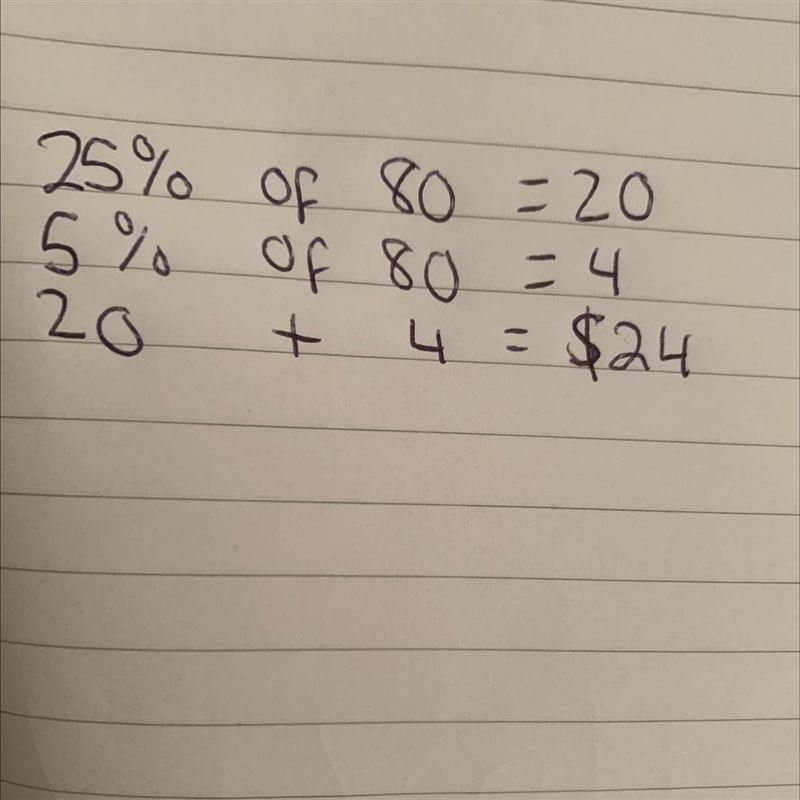 25% of 80 = 20
5% of 80 = 4
20 + 4 = $24